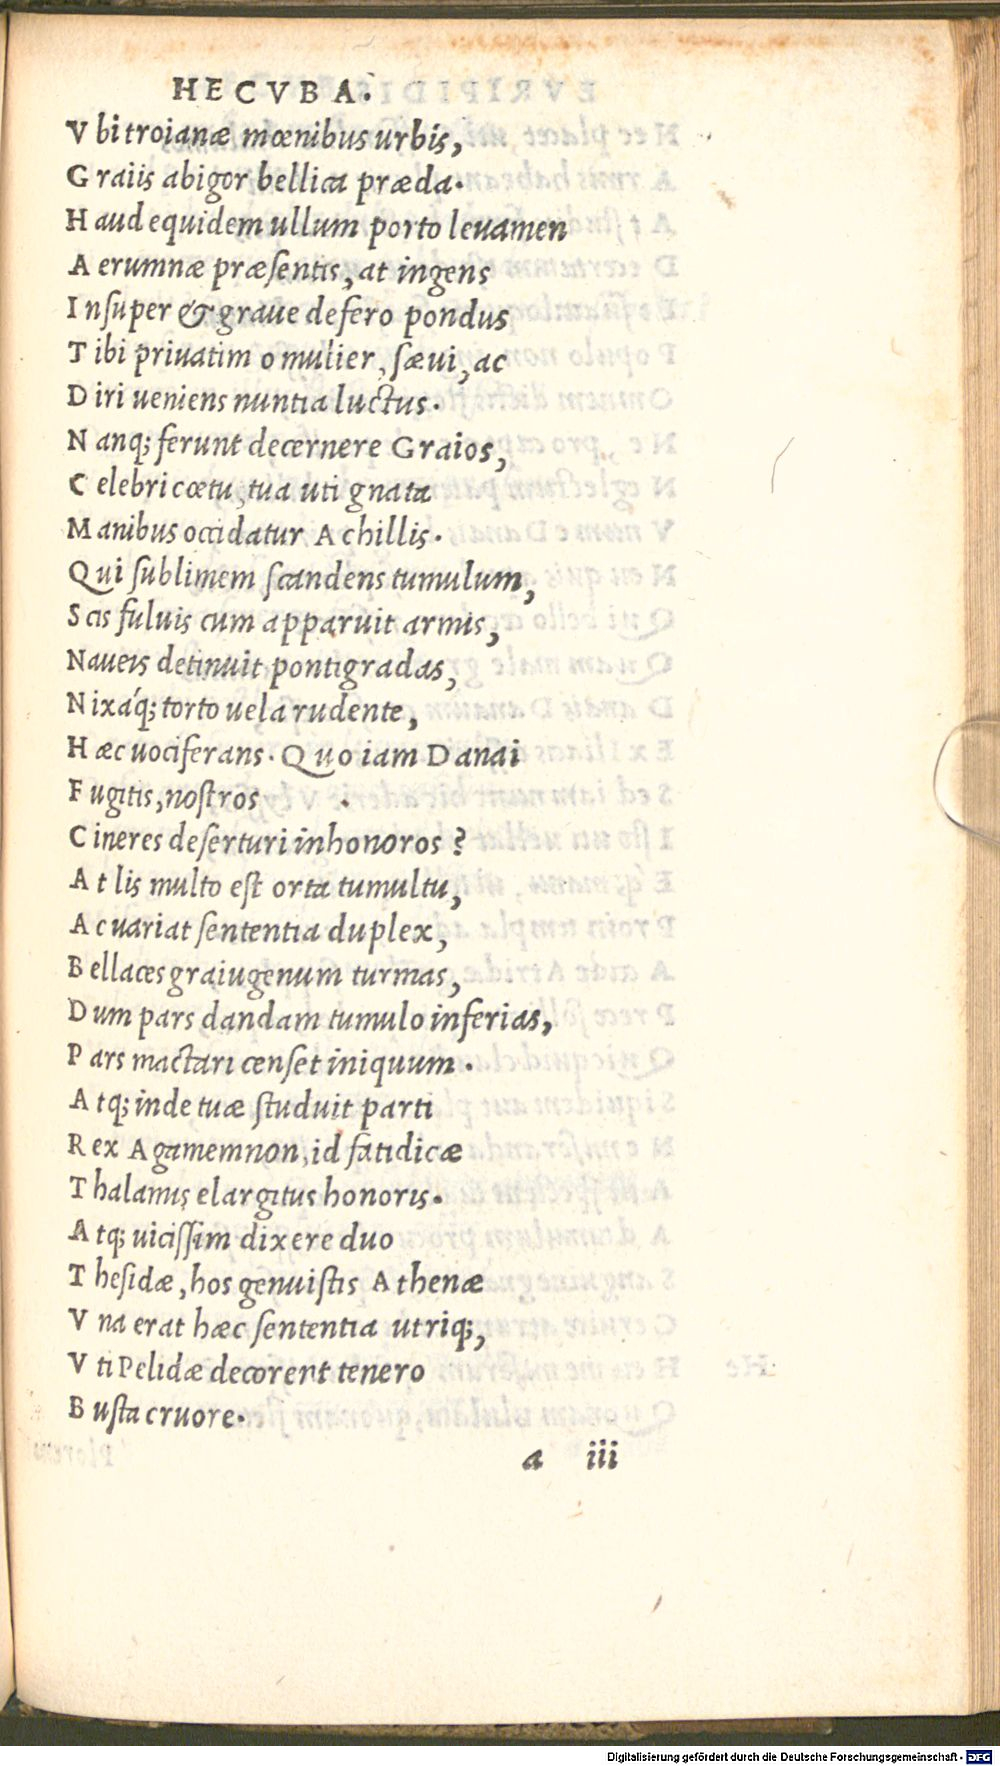 HECVBA.
V bi troianæ mœnibus urbis,
G raiis abigor bellica præda.
H aud equidem ullum porto levamen
A erumnæ præſentis, at ingens
I nſuper & graue defero pondus
T ibi privatim o mulier, ſævi, ac
D iri ueniens nuntia luctus.
N anq; ferunt decernere Graios,
C elebri cœtu, tua uti gnata
M anibus occidatur Achillis.
Q ui ſublimem ſcandens tumulum,
S cis fuluis cum apparuit armis,
N aueis detinuit pontigradas,
N ixáq; torto uela rudente,
H æc uociferans. Quo iam Danai
F ugitis, noſtros
C ineres deſerturi inhonoros?
A t lis multo eſt orta tumultu,
A c uariat ſententia duplex,
B ellaces graiugenum turmas,
D um pars dandam tumulo inferias,
P ars mactari cenſet iniquum.
A tq; inde tuæ ſtuduit parti
R ex Agamemnon, id fatidicæ
T halamis elargitus honoris.
A tq; uiciſſim dixere duo
T heſidæ, hos genuiſtis Athenæ
V na erat hæc ſententia utriq;,
V ti Pelidæ decorent tenero
B uſta cruore.
a iii
Digitalisierung gefördert durch die Deutsche Forschungsgemeinschaft - DFG